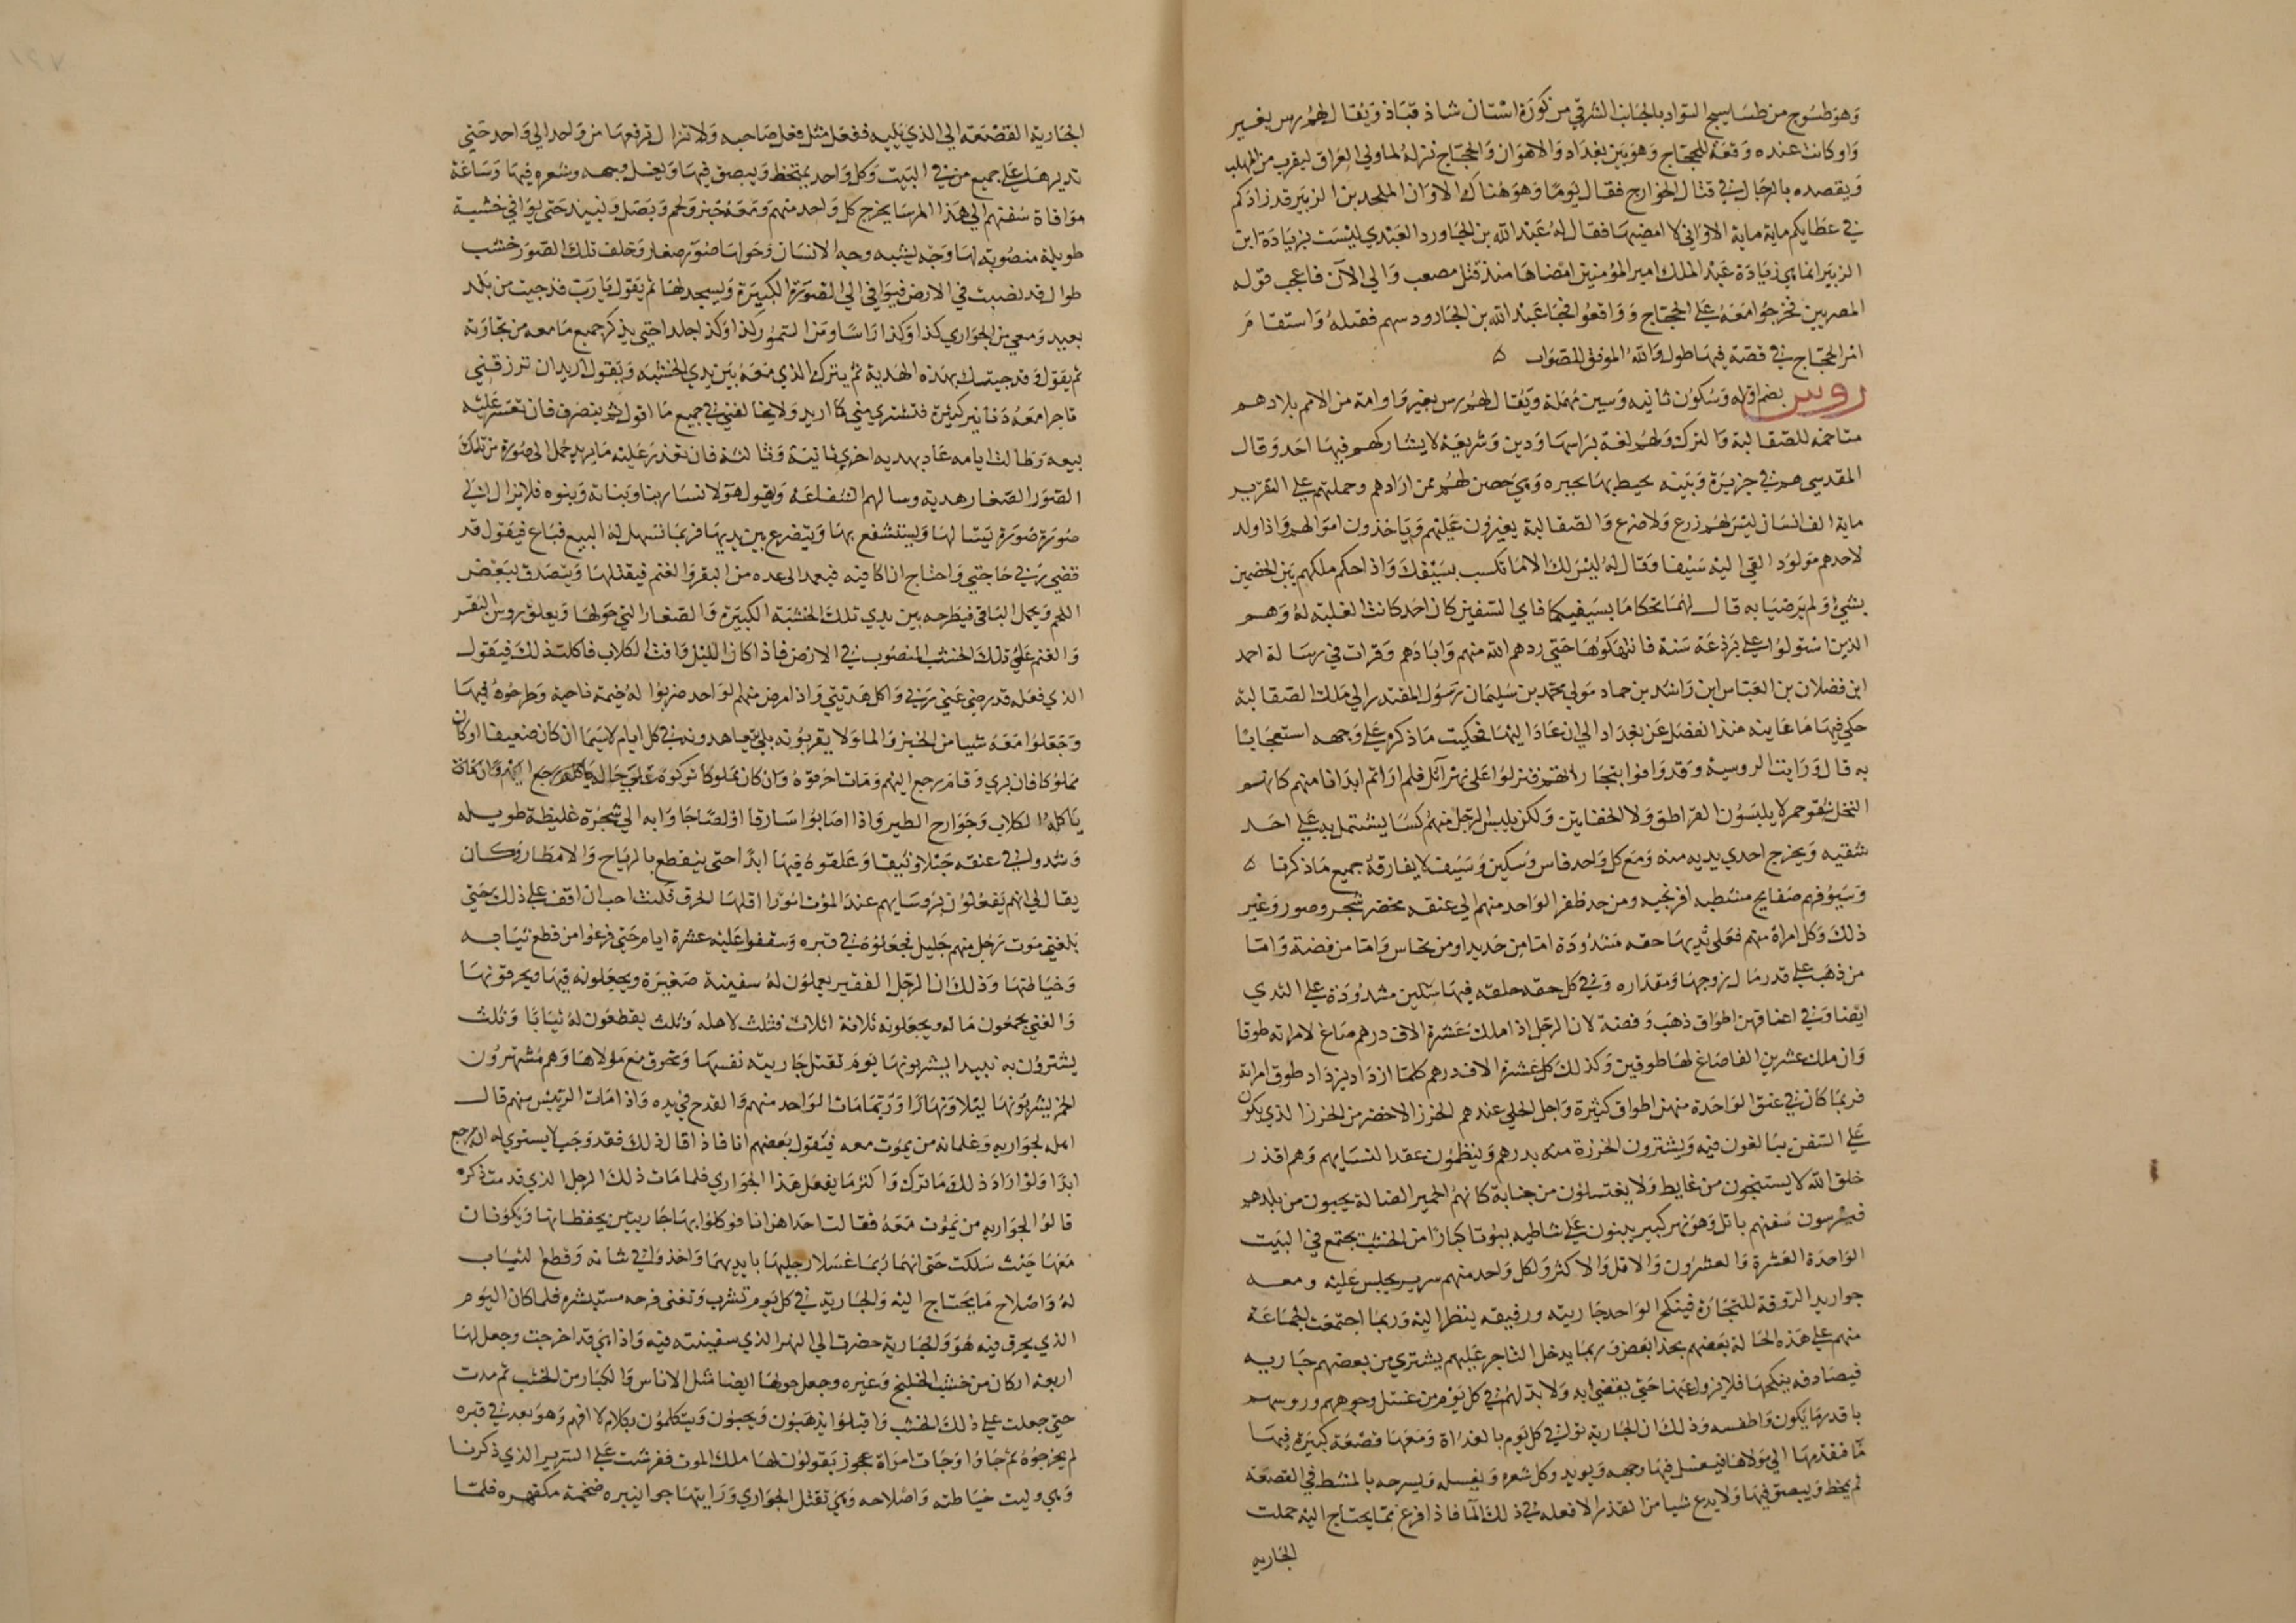 وهو طسوج من طساسيج السواد بالجانب الشرقي من كورة استان شاذ قباذ ويقال لهم رس بغير
واو كانت عنده وقعة للحجاج وهو بين بغداد والاهوان والحجاج نزله لما ولي العراق ليقرب من المهلب
ويقصده بالرجال في قتال الخوارج فقال يوما وهو هناك الاوان الملحد بن الزبير قد زادكم
في عطايكم ماية ماية الاواني لا امضيها فقال له عبد الله بن الجاورد العبدي ليست بزيادة ابن
الزبير انما هي زيادة عبد الملك امير المؤمنين امضاها منذ قتل مصعب والي الآن فاعجب قوله
المصريين فخرجوا معه علي الحجاج وواقعوا فجا عبد الله بن الجارود سهم فقتله واستقام
امر الحجاج في قصة فيها طول والله الموفق للصواب ٥
روس بضم اوله وسكون ثانيه وسين مهملة ويقال لهم رس بغير واو امة من الامم بلادهم
متاخمة للصقالبة والترك ولهم لغة براسها ودين وشريعة لا يشاركهم فيها احد وقال
المقدسي هم في جزيرة وبيئه يحيط بها بحيره وهي حصن لهم ممن ارادهم وجملتهم علي التقرير
ماية الف انسان ليس لهم زرع ولا ضرع والصقالبة يغيرون عليهم وياخذون اموالهم واذا ولد
لاحدهم مولود القي اليه سيفا وقال له ليس لك الا ما تكسب بسيفك واذا حكم ملكهم بين الخصمين
بشيء ولم يرضيا به قال لهما تحاكما بسيفيكما فاي السفين كان احد كانت الغلبة له وهم
الذين استولوا علي برذعة سنة فانتهكوها حتي ردهم الله منهم وابادهم وقرات في رسالة احمد
ابن فضلان بن العباس ابن راشد بن حماد مولي محمد بن سليمان رسول المقتدر الي ملك الصقالبة
حكي فيها ما عاينه منذ انفصل عن بغداد الي ان عاد اليها فحكيت ما ذكره علي وجهه استعجابا
به قال ورايت الروسية وقد وافوا بتجاراتهم فنزلوا علي نهر آتل فلم ار اتم ابدانا منهم كانهم
النخل شقر حمر لا يلبسون القراطق ولا الخفاتين ولكن يلبس الرجل منهم كسا يشتمل به علي احد
شقيه ويخرج احدي يديه منه ومع كل واحد فاس وسكين وسيف لا يفارقه جميع ما ذكرنا ٥
وسيوفهم صفايح مشطبه افرنجيه ومن حد ظفر الواحد منهم الي عنقه مخضر شجر وصور وغير
ذلك وكل امراة منهم فعلي ثديها حقه مشدودة اما من حديد او من نحاس واما من فضة واما
من ذهب علي قدر مال زوجها ومقداره وفي كل حقه حلقه فيها سكين مشدودة علي الثدي
ايضا وفي اعناقهن اطواق ذهب وفضة لان الرجل اذا ملك عشرة الاف درهم صاغ لامراته طوقا
وان ملك عشرين الفا صاغ لها طوقين وكذلك كل عشرة الاف درهم كلما ازداد يزداد طوق امراته
فربما كان في عنق الواحدة منهن اطواق كثيرة واجل الحلي عندهم الخرز الاخضر من الخرز الذي يكون
علي السفن يبالغون فيه ويشترون الخرزة منه بدرهم وينظمون عقدا لنسايهم وهم اقذر
خلق الله لا يستنجون من غايط ولا يغتسلون من جنابة كانهم الحمير الضالة يجيون من بلدهم
فيرسون سفنهم باتل وهو نهر كبير يبنون علي شاطيه بيوتا كبارا من الخشب يجتمع في البيت
الواحدة العشرة والعشرون والاقل والاكثر ولكل واحد منهم سرير يجلس عليه ومعه
جواريه الروقة للتجارة فينكح الواحد جاريته ورفيقه ينظر اليه وربما اجتمعت الجماعة
منهم علي هذه الحالة بعضهم بحذا بعض وربما يدخل التاجر عليهم يشتري من بعضهم جاريه
فيصادفه ينكحها فلا يزول عنها حتي يقضي اربه ولا بد لهم في كل يوم من غسل وجوههم وروسهم
باقذر ما يكون واطفسه وذلك ان الجارية توافي كل يوم بالغداة ومعها قصعة كبيرة فيها
مآ فتقدمها الي مولاها فيغسل فيها وجهه ويديه وكل شعره ويغسله ويسرحه بالمشط في القصعة
ثم يمخط ويبصق فيها ولا يدع شيا من القذر الا فعله في ذلك المآ فاذا فرغ مما يحتاج اليه حملت
الجاريه
الجارية القصعة الي الذي يليه ففعل مثل فعل صاحبه ولا تزال ترفعها من واحد الي واحد حتي
تديرها علي جميع من في البيت وكل واحد يمتخظ ويبصق فيها ويغسل وجهه وشعره فيها وساعة
موافاة سفنهم الي هذا المرسا يخرج كل واحد منهم ومعه خبز ولحم وبصل ونبيند حتي يوافي خشبة
طويلة منصوبة لها وجه يشبه وجه الانسان وحولها صور صغار وخلف تلك الصور خشب
طوال قد نصبت في الارض فيوافي الي الصورة الكبيرة ويسجد لها ثم يقول يا رب قد جيت من بلد
بعيد ومعي من الجواري كذا وكذا راسا ومن السمور كذا وكذا جلدا حتي يذكر جميع ما معه من تجارته
ثم يقول وقد جيتك بهذه الهدية ثم يترك الذي معه بين يدي الخشبه ويقول اريد ان ترزقني
تاجرا معه دنانير كثيرة فتشتري مني كما اريد ولا يخالفني في جميع ما اقول ثم ينصرف فان تعسر عليه
بيعه وطالت ايامه عاد بهديه اخري ثانية وثالثة فان تعذر عليه ما يريد حمل الي صورة من تلك
الصور الصغار هدية وسالهم الشفاعة ويقول هولا نسا ربنا وبناته وبنوه فلا يزال الي
صورة صورة يسالها ويستشفع بها ويتضرع بين يديها فربما تسهل له البيع فباع فيقول قد
قضي ربي حاجتي واحتاج ان اكافيه فيعمد الي عده من البقر والغنم فيقتلها ويتصدق ببعض
اللحم ويحمل الباقي فيطرحه بين يدي تلك الخشبة الكبيرة والصغار التي حولها ويعلق روس البقر
والغنم علي تلك الخشب المنصوب في الارض فاذا كان الليل وافت الكلاب فاكلت ذلك فيقول
الذي فعله قد رضي عني ربي واكل هديتي واذا مرض منهم الواحد ضربوا له خيمة ناحية وطرحوه فيها
وجعلوا معه شيا من الخبز والما ولا يقربونه بل يتعاهدونه في كل ايام لا سيما ان كان ضعيفا او كان
مملوكا فان بري وقام رجع اليهم ومات احرقوه وان كان مملوكا تركوه علي حاله
ياكله الكلاب وجوارح الطير واذا اصابوا سارقا او لصا جاوا به الي شجرة غليظة طويله
وشدوا في عنقه حبلا وثيقا وعلقوه فيها ابدا حتي ينقطع بالرياح والامطار وكان
يقال لي انهم يفعلون بروسايهم عند الموت امورا اقلها الحرق فكنت احب ان اقف علي ذلك حتي
بلغني موت رجل منهم جليل فجعلوه في قبره وسقفوا عليه عشرة ايام حتي فرغوا من قطع ثيابه
وخياطتها وذلك ان الرجل الفقير يعملون له سفينة صغيرة ويجعلونه فيها ويحرقونها
والغني يجمعون ماله ويجعلونه ثلاثة اثلاث فثلث لاهله وثلث يقطعون له ثيابا وثلث
يشترون به نبيدا يشربونها يوم تقتل جاريته نفسها وتحرق مع مولاها وهم مشتهرون
الخمر يشربونها ليلا ونهارا وربما مات الواحد منهم والقدح في يده واذا مات الرييس منهم قال
اهله لجواريه وغلمانه من يموت معه فيقول بعضهم انا فاذا قال ذلك فقد وجب لا يستوي له ان يرجع
ابدا ولو اراد ذلك ما ترك واكثر ما يفعل هذا الجواري فلما مات ذلك الرجل الذي قدمت ذكره
قالوا لجواريه من يموت معه فقالت احداهن انا فوكلوا بها جاريتين يحفظانها ويكونان
معها حيث سلكت حتي انهما ربما غسلا رجليها بايديهما واخذوا في شانه وقطع الثياب
له واصلاح ما يحتاج اليه والجارية في كل يوم تشرب وتغني فرحه مستبشره فلما كان اليوم
الذي يحرق فيه هو والجارية حضرت الي النهر الذي سفينته فيه واذا هي قد اخرجت وجعل لها
اربعة اركان من خشب الخلنج وغيره وجعل حولها ايضا مثل الاناس والكبار من الخشب ثم مدت
حتي جعلت علي ذلك الخشب واقبلوا يذهبون ويجيون ويتكلمون بكلام لا افهم وهو بعد في قبره
لم يخرجوه ثم جاوا وجات امراة عجوز يقولون لها ملك الموت ففرشت علي السرير الذي ذكرنا
وهي وليت خياطته واصلاحه وهي تقتل الجواري ورايتها جوانبيره ضخمة مكفهره فلما